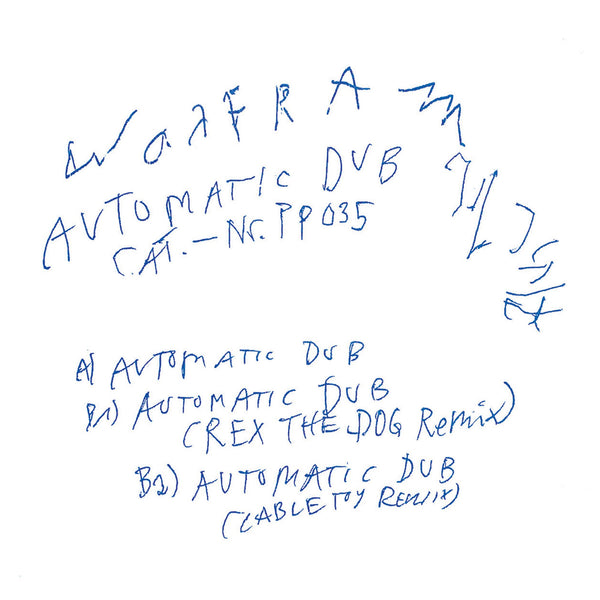 WolFRAm
AUTOMATIC DUB
CAT.-Nr. PP035
A) AUTOMATIC DUB
B1) AUTOMATIC DUB
(REX THE DOG Remix)
B2) AUTOMATIC DUB
(CABLETOY REMIX)